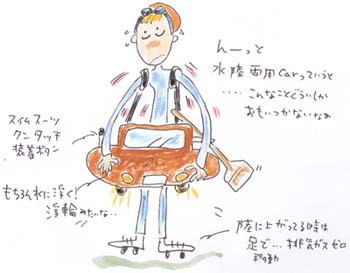 んーっと
水陸両用Carっていうと
‥‥こんなことぐらいしか
おもいつかないなぁ
スイムスーツ
ワンタッチ
装着ボタン
もちろん水に浮く!
浮輪みたいな‥
陸に上がってる時は
足で…排気ガスゼロ